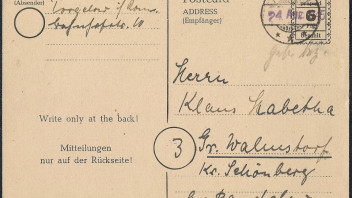 (Absender)
Torgelow
Bahnhofstr.
Write only at the back!
Mitteilungen
nur auf der Rückseite!
Postcard
ADDRESS
(Empfänger)
24
6
Bezahlt
Herrn
Klaus Mabetha
3
Gr. Walmstorf
Kr. Schönberg